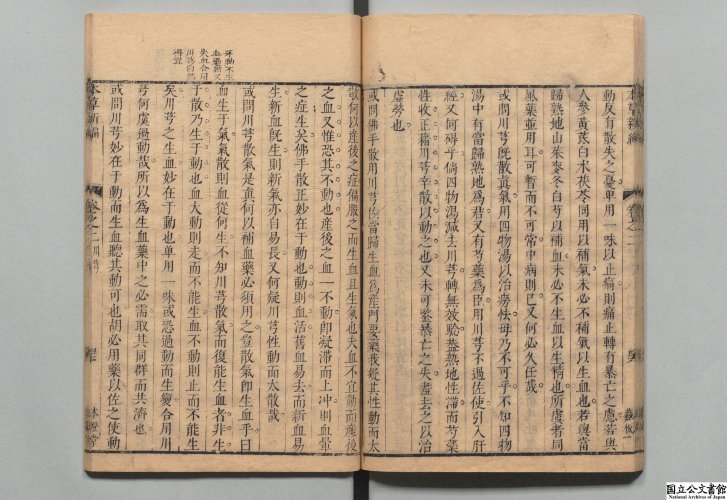 動反有散失之憂單用一味以止痛則痛止轉有暴亡之慮若與
人參黃茋白朮茯苓同用以補氣未必不補氣以生血也若與當
歸熟地山茱麥冬白芍以補血未必不生血以生精也所虞者同
風藥並用耳可暫而不可常中病則已又何必久任哉
或問川芎既散眞氣用四物湯以治癆怯毋乃不可乎不知四物
湯中有當歸熟地爲君又有芍藥爲臣用川芎不過佐使引入肝
經又何礙乎倘四物湯減去川芎轉無效驗蓋熱地性滯而芍藥
性收正藉川芎辛散以動之也又未可鑒暴亡之失盡去之以治
虛勞也
或問佛手散用川芎佐當歸生血爲產門要藥我疑其性動而太
散何以產後之症偏服之而生血且生氣也夫血不宜動而產後
之血又惟恐其不動也產後之血一不動即凝滯而上冲則血暈
之症生矣佛手散正妙在于動也動則血活舊血易去而新血易
生新血旣生則新氣亦自易長又何疑川芎性動而太散哉
或問川芎散氣是眞何以補血藥必須用之豈散氣即生血乎曰
血生于氣氣散則血從何生不知川芎散氣而復能生血者非生
于散乃生于動也血大動則走而不能生血不動則止而不能生
矣川芎之生血妙在于動也單用一味或恐過動而生變合用川
芎何虞過動哉所以爲生血藥中之必需取其同群而共濟也
或問川芎妙在于動而生血聽其動可也胡必用藥以佐之使動
本草新編
卷之二
川芎
不生
合用
川芎自然
得宜
国立公文書館
National Archives of Japan